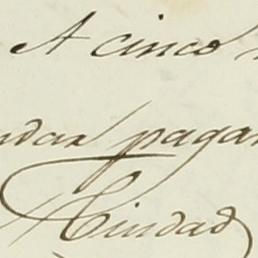 A cinco
ndar pagar
Ciudad